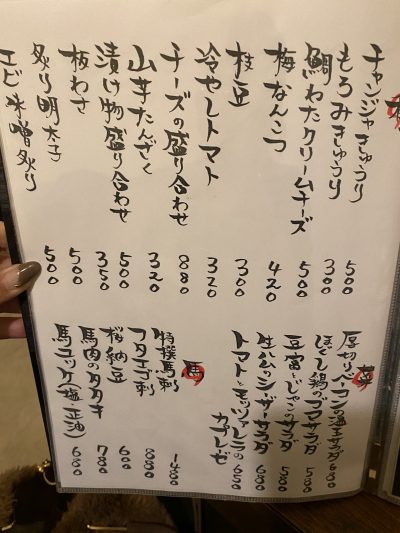 チャンジャきゅうり 500
もろみきゅうり 300
鯛わたクリームチーズ 500
梅なんこつ 420
枝豆 300
冷やしトマト 320
チーズの盛り合わせ 880
山芋たんざく 320
漬け物盛り合わせ 500
板わさ 350
炙り明太子 500
エビ味噌炙り 500
菜
厚切りベーコンの温サラダ 680
ほぐし鶏のゴマサラダ 580
豆富とじゃこのサラダ 580
生ハムのシーザーサラダ 680
トマトとモッツァレラのカプレーゼ 650
馬
特撰馬刺 1480
フタエゴ刺 880
桜納豆 600
馬肉のタタキ 780
馬ユッケ(塩、正油) 680